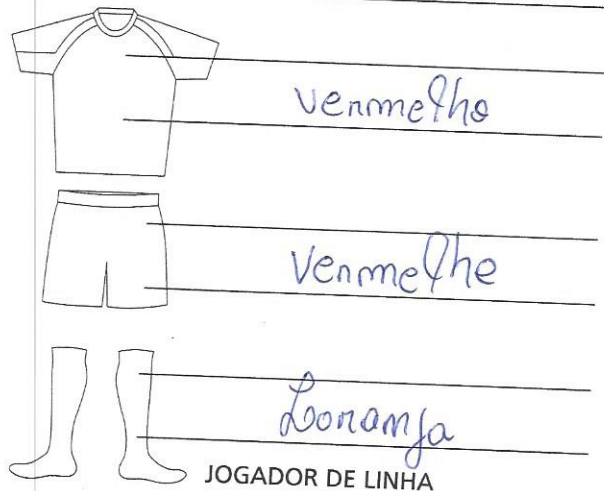 Vermelho
Vermelho
Laranja
JOGADOR DE LINHA